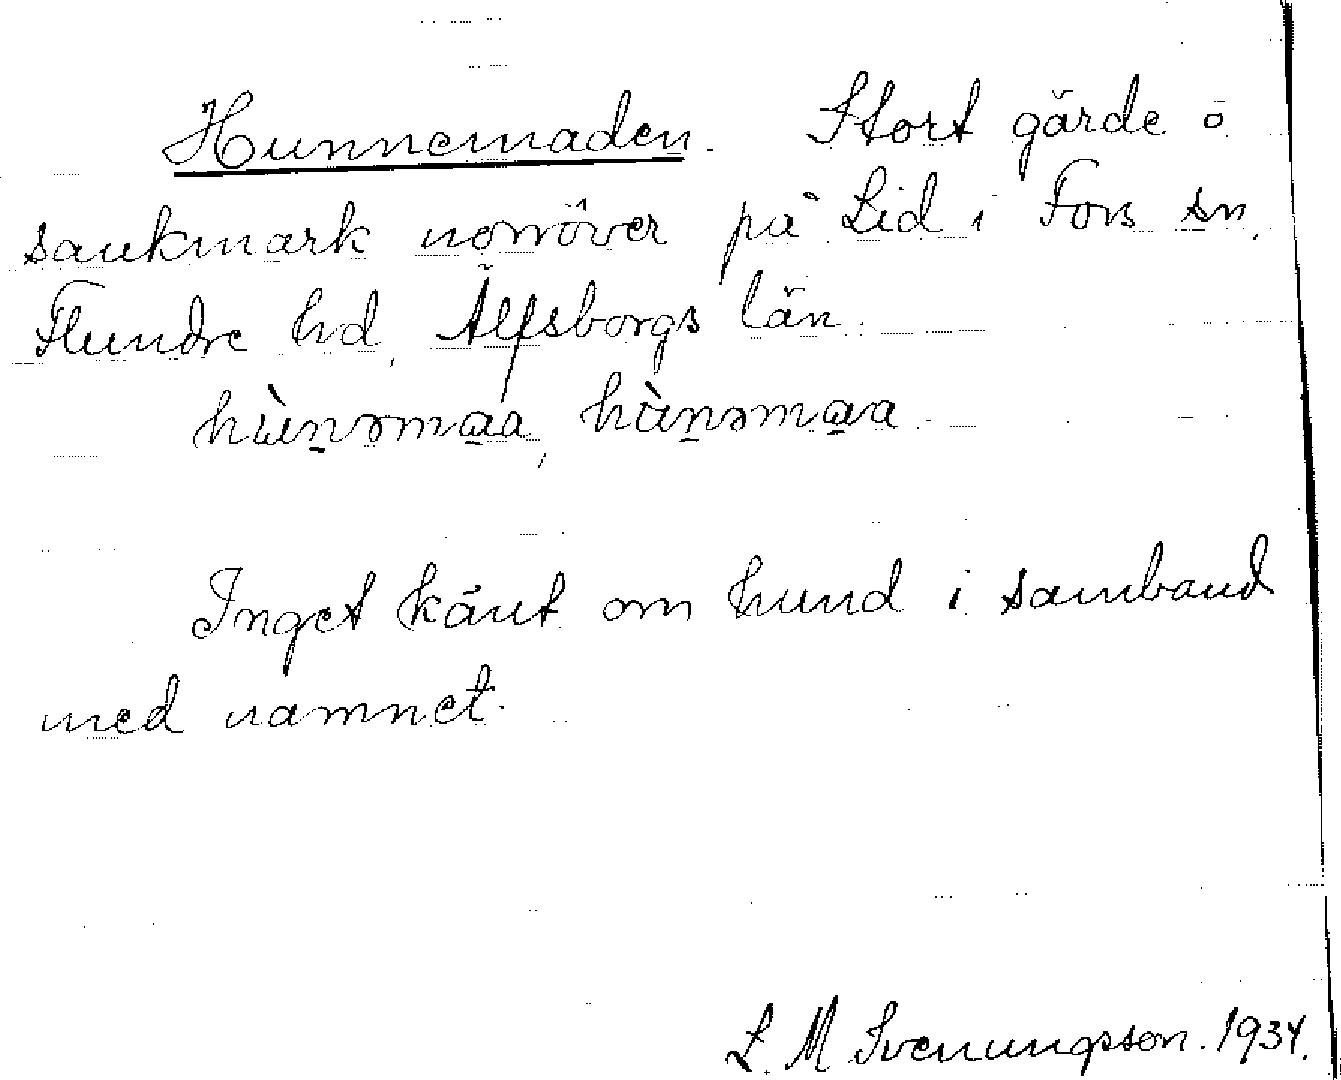 Hunnemaden. Stort gärde o
sankmark norröver på Lid i Fors sn,
Flundre hd, Älfsborgs län.
hùn̲əma̲a, hùn̲əma̲a
Inget känt om hund i samband
med namnet.
L. M Svenungsson. 1934.